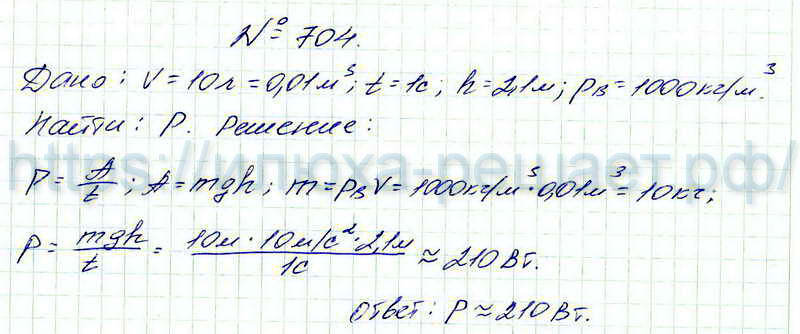 № 704.
Дано: V = 10л = 0,01 м³; t = 1с; h = 2,1м; ρв = 1000 кг/м³.
Найти: P. Решение:
https://илюха-решает.рф/
P = A/t; A = mgh; m = ρвV = 1000кг/м³·0,01м³ = 10кг;
P = mgh/t = 10м·10м/с²·2,1м/1с ≈ 210 Вт.
ответ: P ≈ 210 Вт.